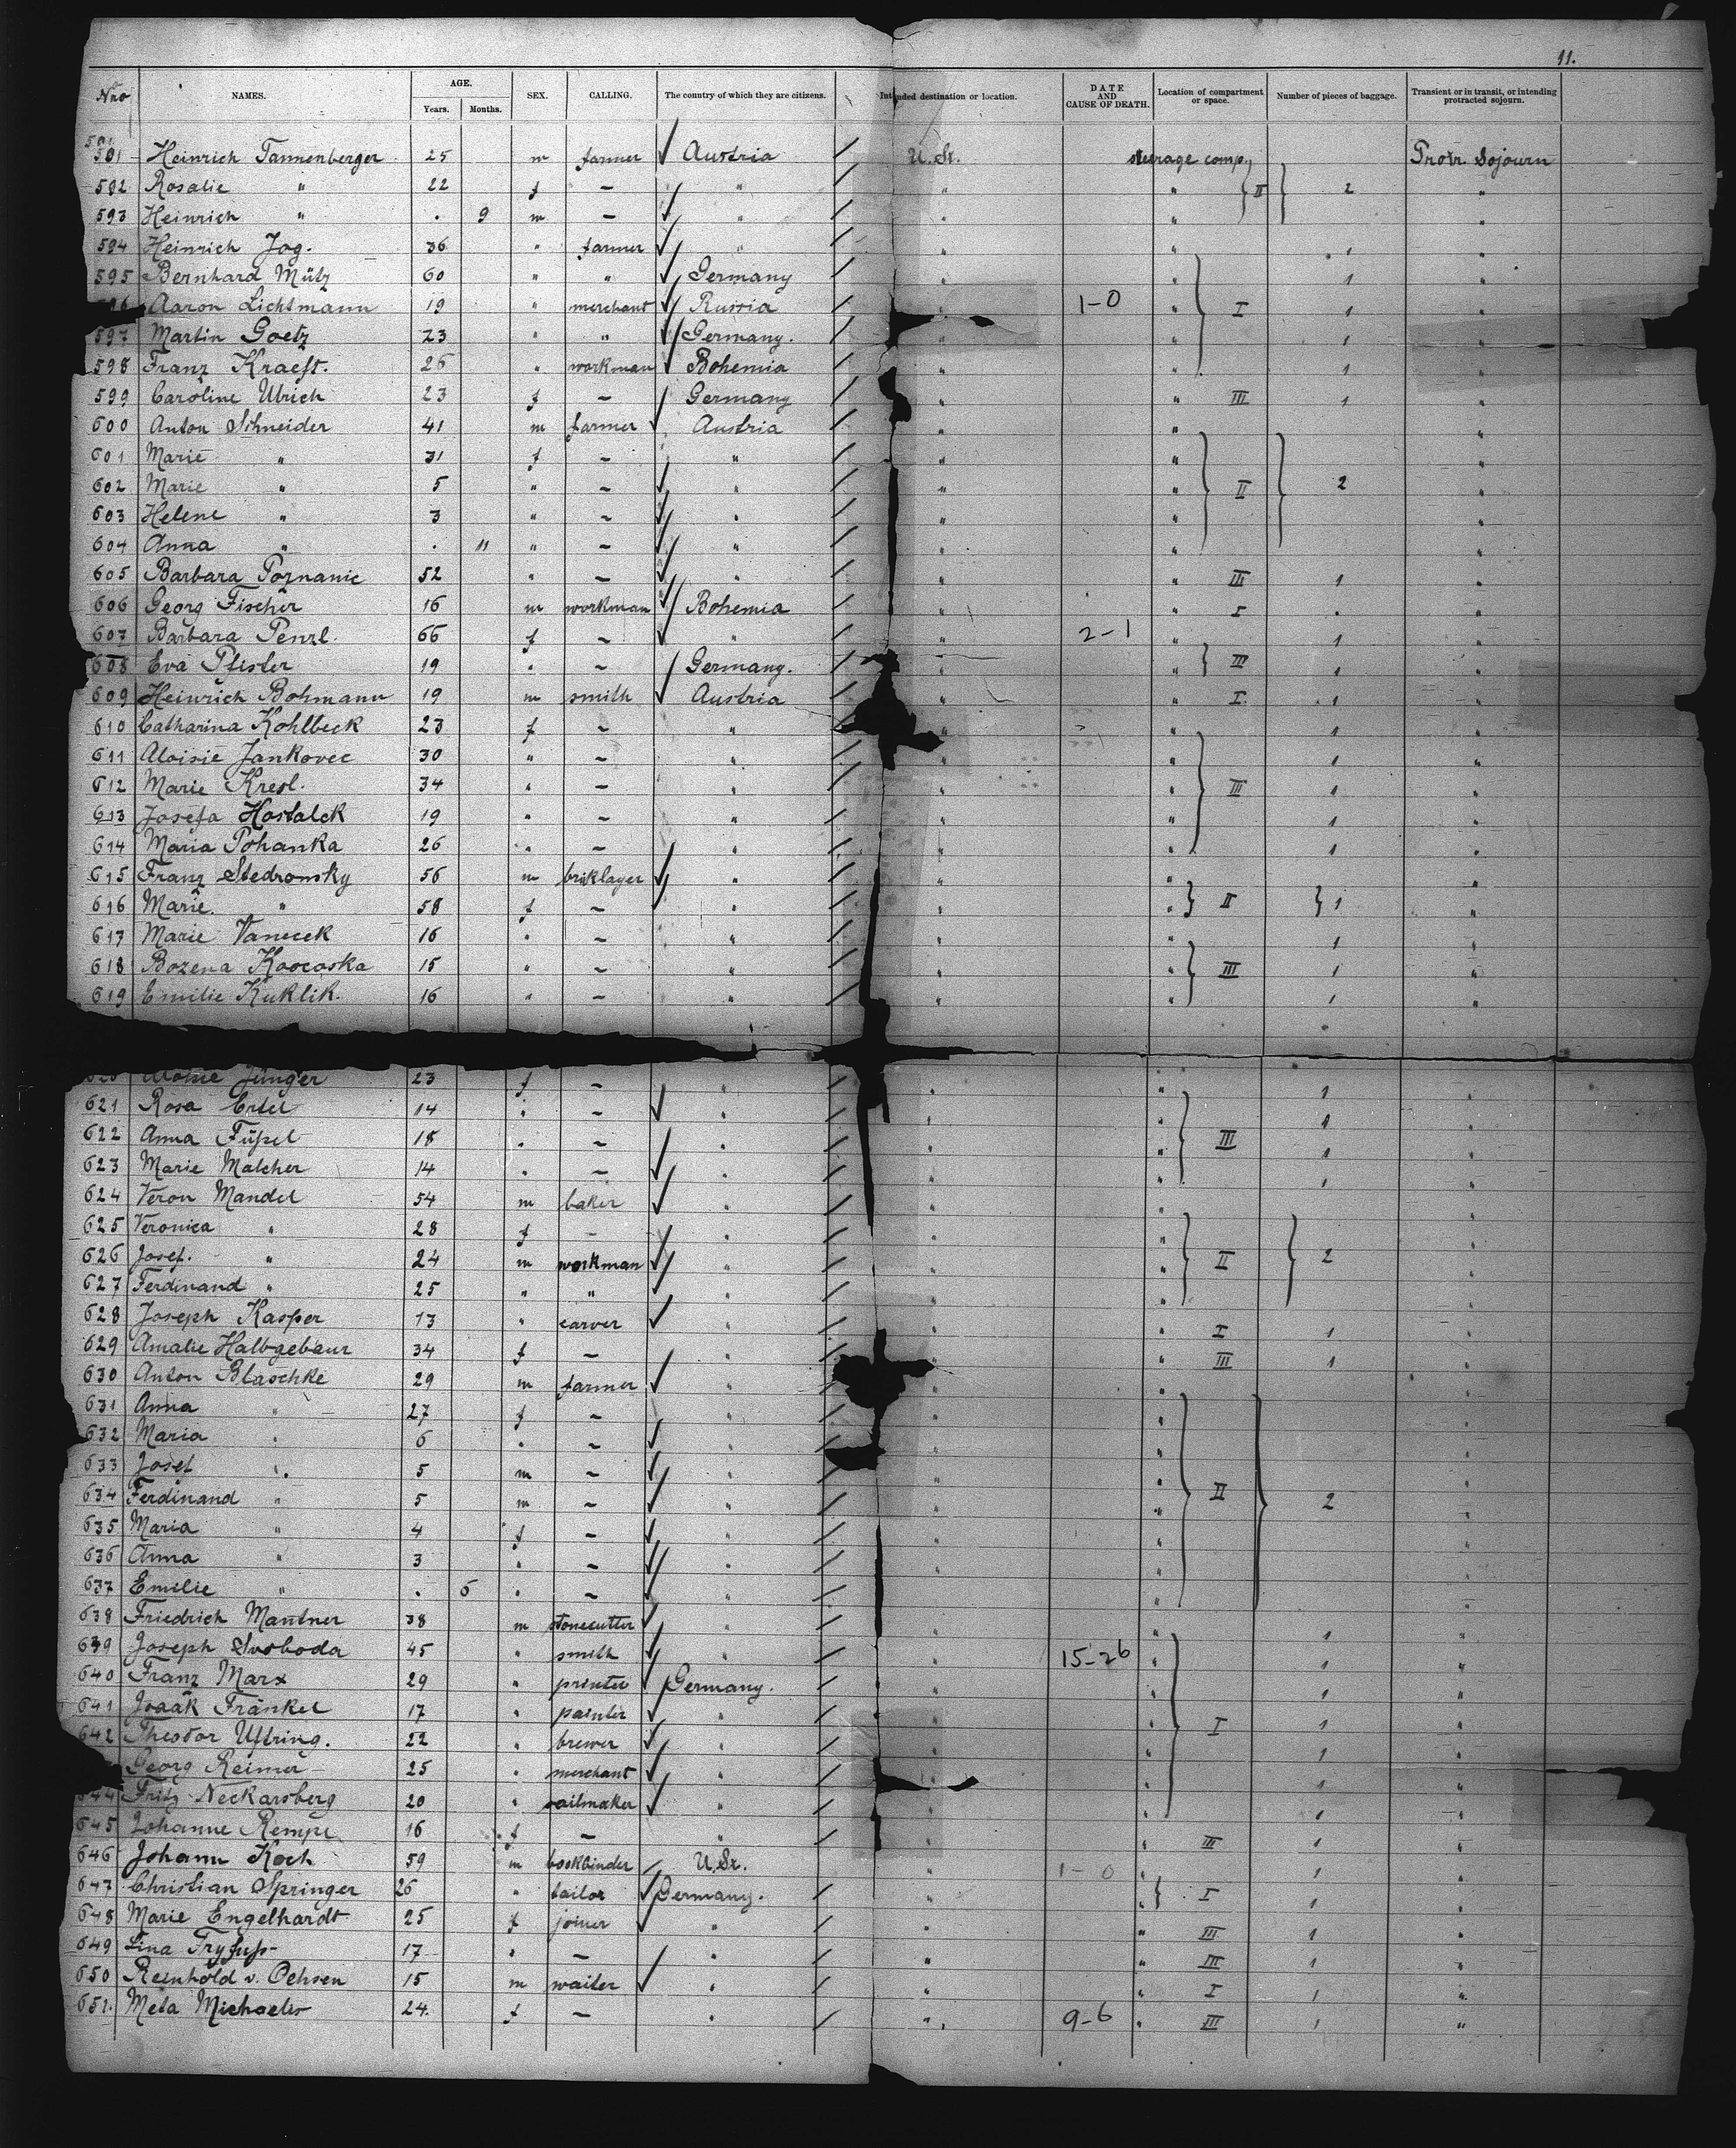 11.
Nro NAMES. AGE. Years. Months. SEX. CALLING. The country of which they are citizens. Intended destination or location. DATE AND CAUSE OF DEATH. Location of compartment or space. Number of pieces of baggage. Transient or in transit, or intending protracted sojourn.
591 Heinrich Tannenberger 25 m farmer Austria U. St. steerage comp. Protr. Sojourn
592 Rosalie " 22 f – " " " II 2 "
593 Heinrich " . 9 m – " " " "
594 Heinrich Jog. 36 " farmer " " " 1 "
595 Bernhard Mütz 60 " " Germany " " 1 "
596 Aaron Lichtmann 19 " merchant Russia " 1-0 " I 1 "
597 Martin Goetz 23 " " Germany. " " 1 "
598 Franz Kraeft. 26 " workman Bohemia " " 1 "
599 Caroline Ulrich 23 f – Germany " " III 1 "
600 Anton Schneider 41 m farmer Austria " " "
601 Marie " 31 f – " " " "
602 Marie " 5 " – " " " II 2 "
603 Helene " 3 " – " " " "
604 Anna " . 11 " – " " " "
605 Barbara Poznanic 52 " – " " " III 1 "
606 Georg Fischer 16 m workman Bohemia " " I . "
607 Barbara Penzl. 66 f – " " 2-1 " 1 "
608 Eva Pfister 19 " – Germany. " " III 1 "
609 Heinrich Bohmann 19 m smith Austria " " I. 1 "
610 Catharina Kohlbeck 23 f – " " " 1 "
611 Aloisie Jankovec 30 " – " " " 1 "
612 Marie Kresl. 34 " – " " " III 1 "
613 Josefa Hostalek 19 " – " " " 1 "
614 Maria Pohanka 26 " – " " " 1 "
615 Franz Stedromsky 56 m briklayer " " " "
616 Marie. " 58 f – " " " II 1 "
617 Marie Vanecek 16 " – " " " 1 "
618 Bozena Kovcoska 15 " – " " " III 1 "
619 Emilie Kuklik. 16 " – " " " 1 "
Jünger 23 f – " " " 1 "
621 Rosa Ertel 14 " – " " " 1 "
622 Anna Füssel 18 " – " " " III 1 "
623 Marie Malcher 14 " – " " " 1 "
624 Veron Mandel 54 m baker " " " "
625 Veronica " 28 f – " " " "
626 Josef. " 24 m workman " " " II 2 "
627 Ferdinand " 25 " " " " " "
628 Joseph Kasper 13 " carver " " " I 1 "
629 Amalie Halbgebaur 34 f – " " " III 1 "
630 Anton Blaschke 29 m farmer " " " "
631 Anna " 27 f – " " " "
632 Maria " 6 " – " " " "
633 Josef " 5 m – " " " "
634 Ferdinand " 5 m – " " " II 2 "
635 Maria " 4 f – " " " "
636 Anna " 3 " – " " " "
637 Emilie " . 6 " – " " " "
638 Friedrich Mantner 38 m stonecutter " " " 1 "
639 Joseph Svoboda 45 " smith " " 15-26 " 1 "
640 Franz Marx 29 " printer Germany. " " 1 "
641 Isaak Fränkel 17 " painter " " " I 1 "
642 Theodor Uftring. 22 " brewer " " " 1 "
Georg Reimer 25 " merchant " " " 1 "
644 Fritz Neckarsberg 20 " sailmaker " " " 1 "
645 Johanne Rempe 16 f – " " " III 1 "
646 Johann Koch 59 m bookbinder U. St. " 1-0 " 1 "
647 Christian Springer 26 " tailor Germany. " " I 1 "
648 Marie Engelhardt 25 f joiner " " " III 1 "
649 Lina 17 " – " " " III 1 "
650 Reinhold v. Oehsen 15 m waiter " " " I 1 "
651. Meta Michaelis 24. f – " " 9-6 " III 1 "